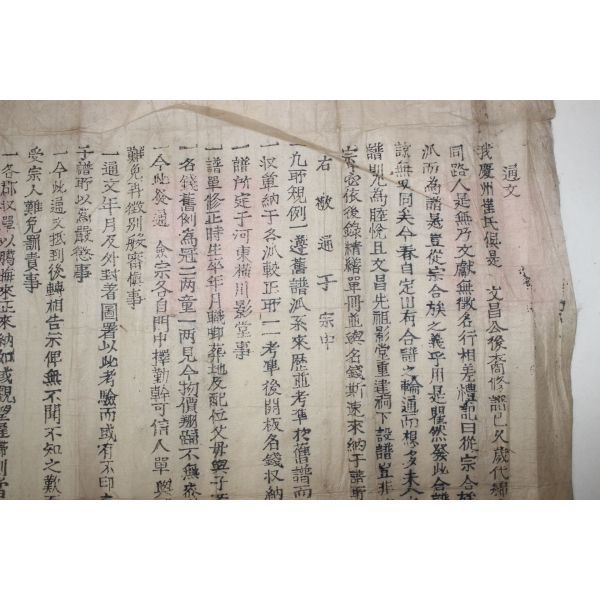 通文
我慶州崔氏俱是 文昌公後裔修譜已久歲代
同路人是無乃文獻無徵名行相差禮記曰從宗合族
派而爲譜是豈從宗合族之義乎用是瞿然發此合譜
諒無異同矣今春自定山有合譜之輪通而根多未
譜則尤爲睦悅且文昌先祖影堂重建祠下設譜豈非
宗宅依後錄精繕單冊並與名錢斯速來納于譜所
右敬通于 宗中
一凡規例一遵舊譜派系來歷並考準於舊譜而
一收單納于各派較正所一一考準後開板名錢收納
一譜所定于河東橫川影堂事
一譜單修正時生卒年月職啣葬地及配位父母與子
一名錢舊例爲冠二兩童一兩見今物價翔踴不無
一今此發通 僉宗各自門中擇勤幹可信人單與
難免再徵別般齊愼事
一通文年月及外封着圖署以此考驗而或有不印
子譜所以爲嚴懲事
一今此通文抵到後轉相告示俾無不聞不知之歎
受宗人難免罰責事
一各郡收單以 來正來納如或觀望 滯則